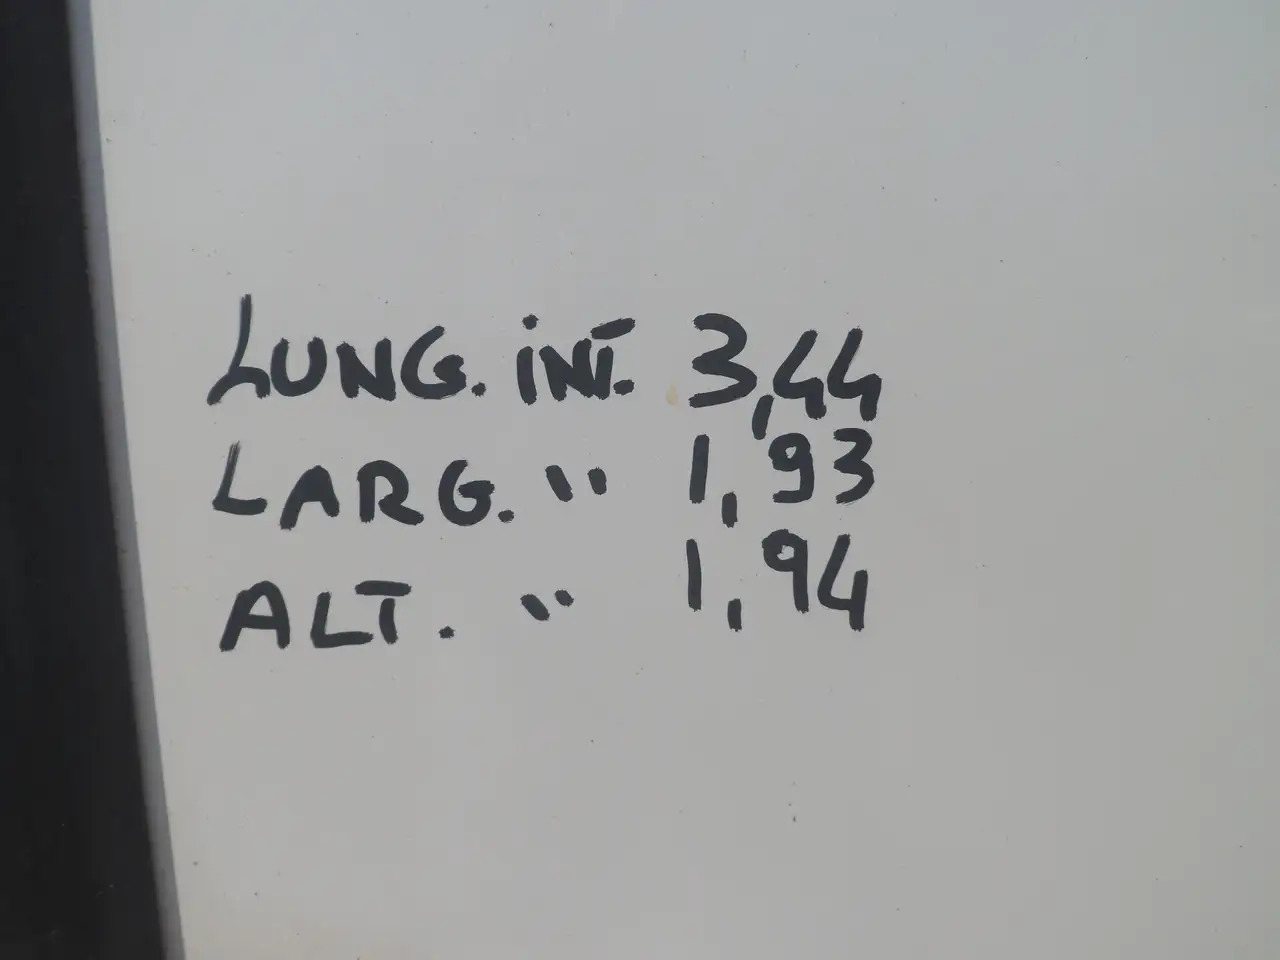 LUNG. INT. 3,44
LARG. " 1,93
ALT. " 1,94